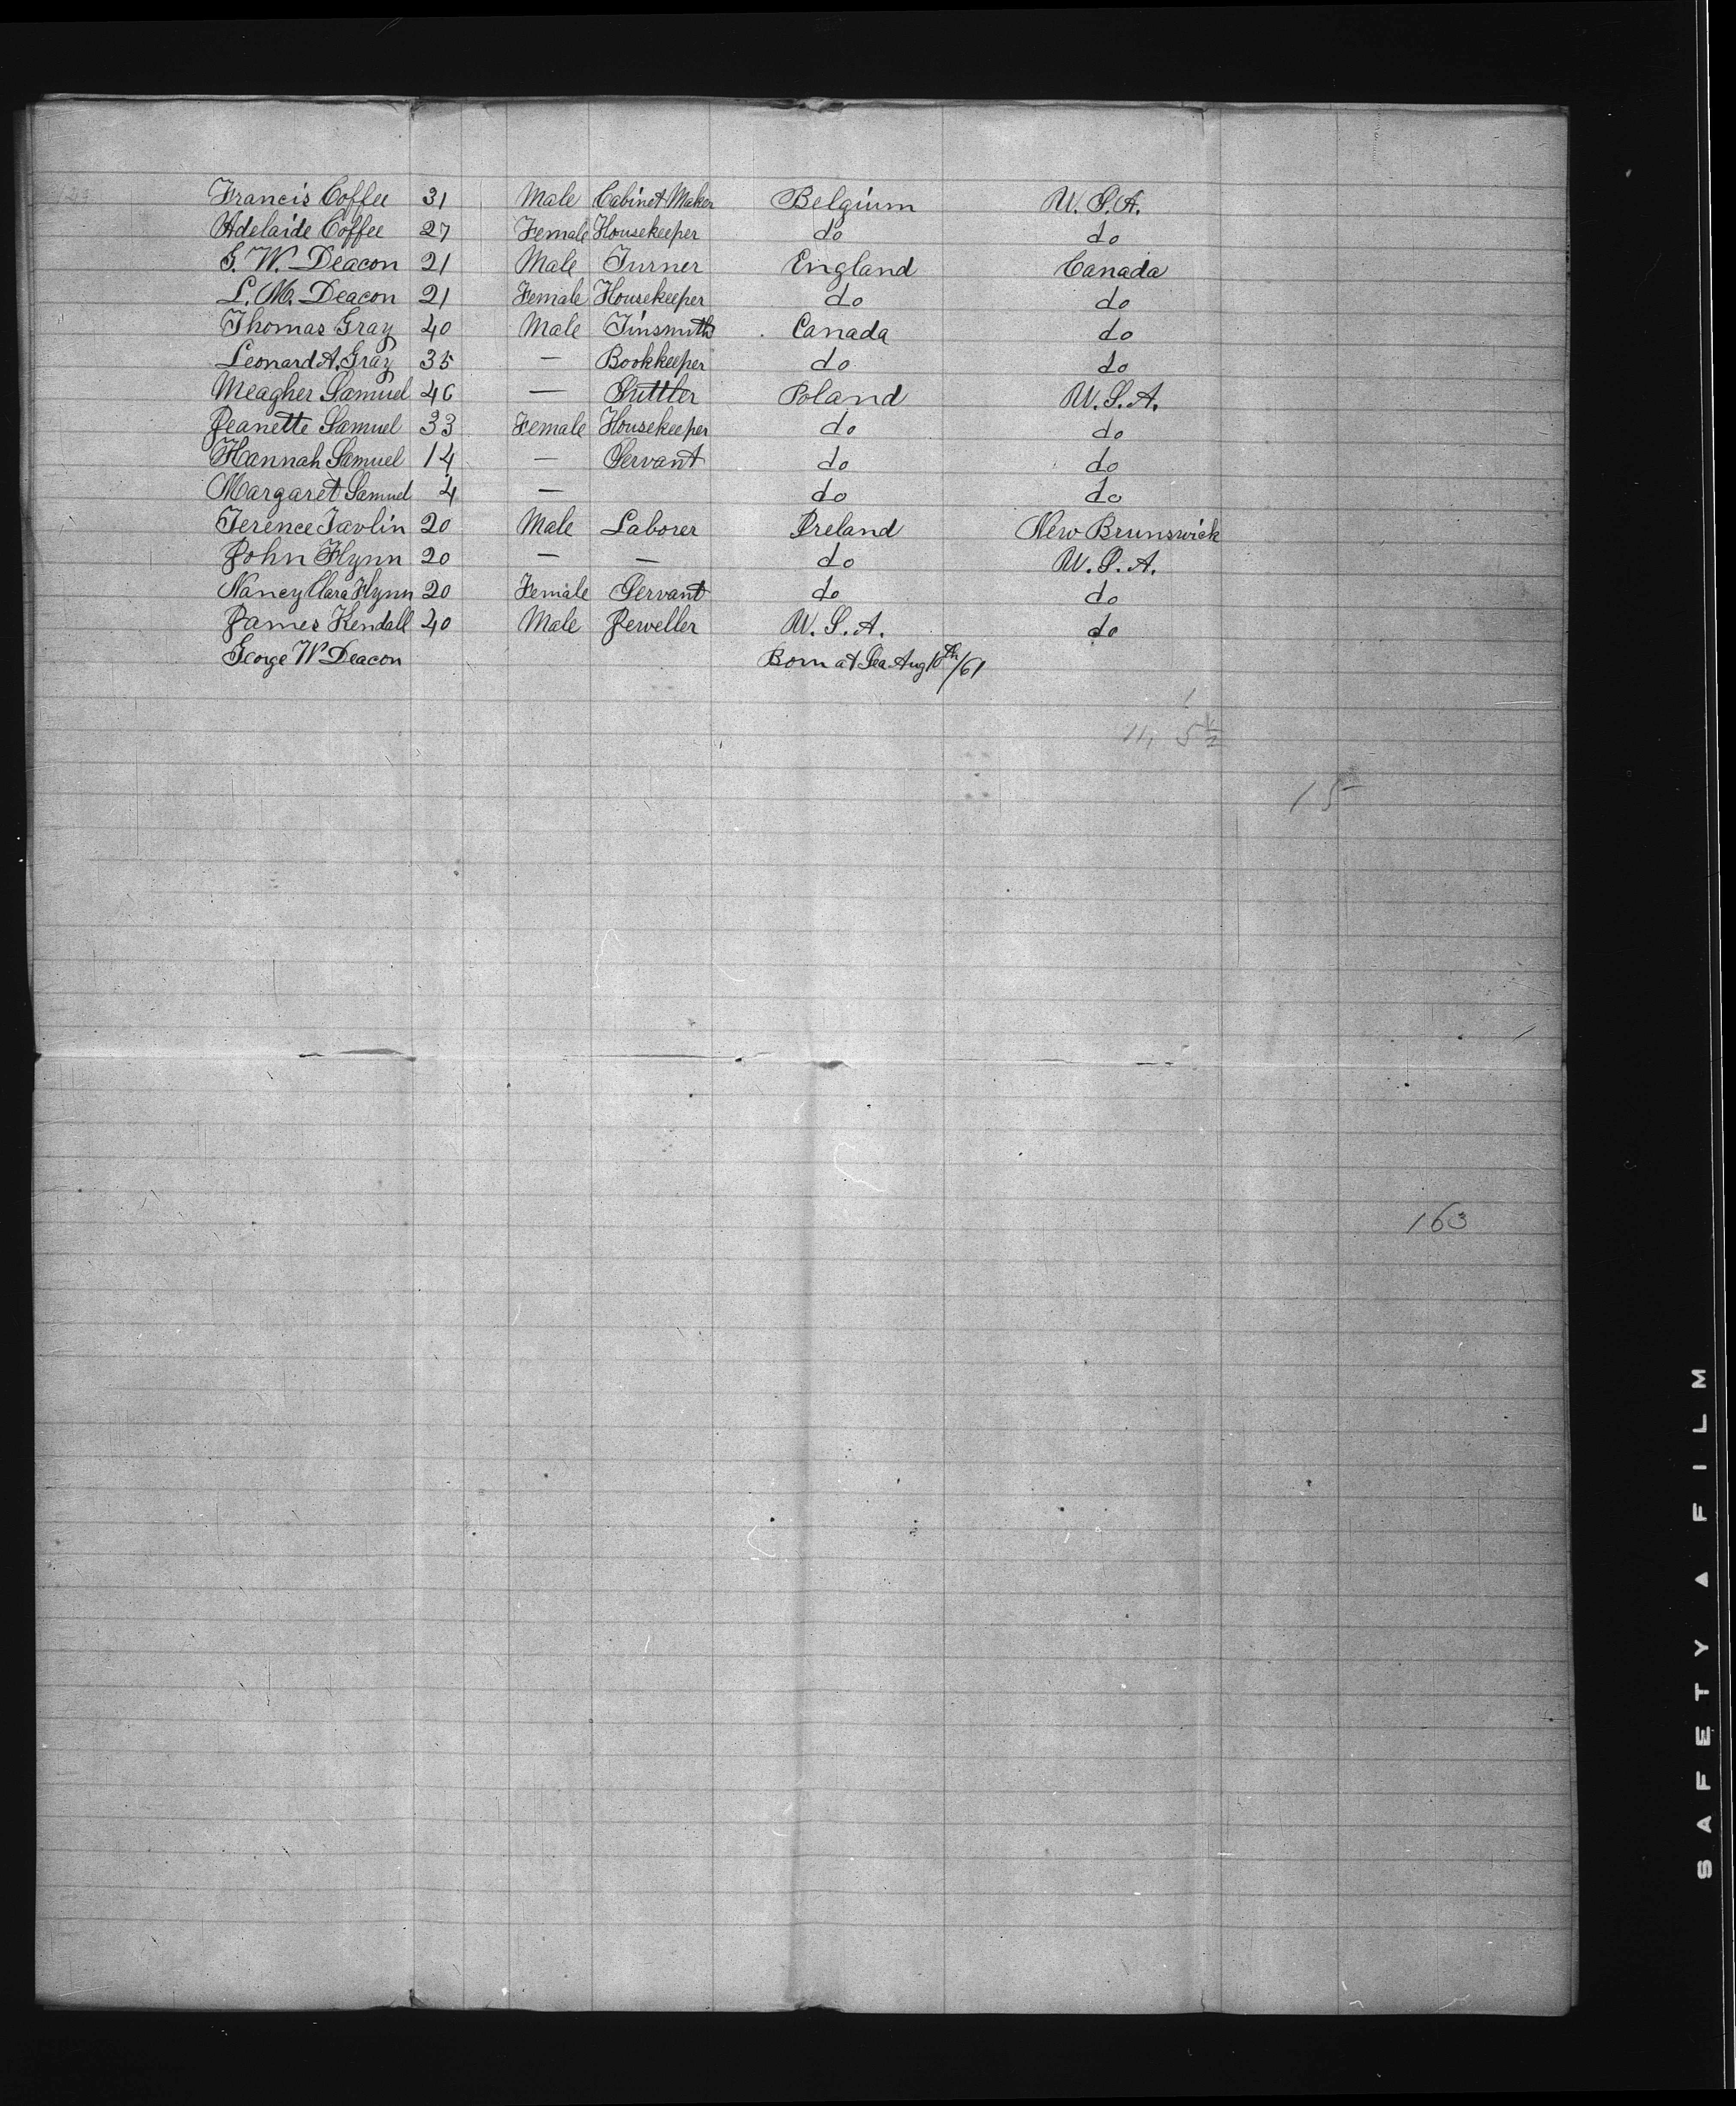 Francis Coffee 31 Male Cabinet Maker Belgium U.S.A.
Adelaide Coffee 27 Female Housekeeper do do
G. W. Deacon 21 Male Turner England Canada
L. M. Deacon 21 Female Housekeeper do do
Thomas Gray 40 Male Tinsmith Canada do
Leonard A. Gray 35 — Bookkeeper do do
Meagher Samuel 46 — Suttler Poland U.S.A.
Jeanette Samuel 33 Female Housekeeper do do
Hannah Samuel 14 — Servant do do
Margaret Samuel 4 — do do
Terence Tavlin 20 Male Laborer Ireland New Brunswick
John Flynn 20 — — do U.S.A.
Nancy Clara Flynn 20 Female Servant do do
James Kendall 40 Male Jeweller U.S.A. do
George W Deacon Born at Sea Aug 10th/61
11, 5½
15
163
SAFETY ▲ FILM